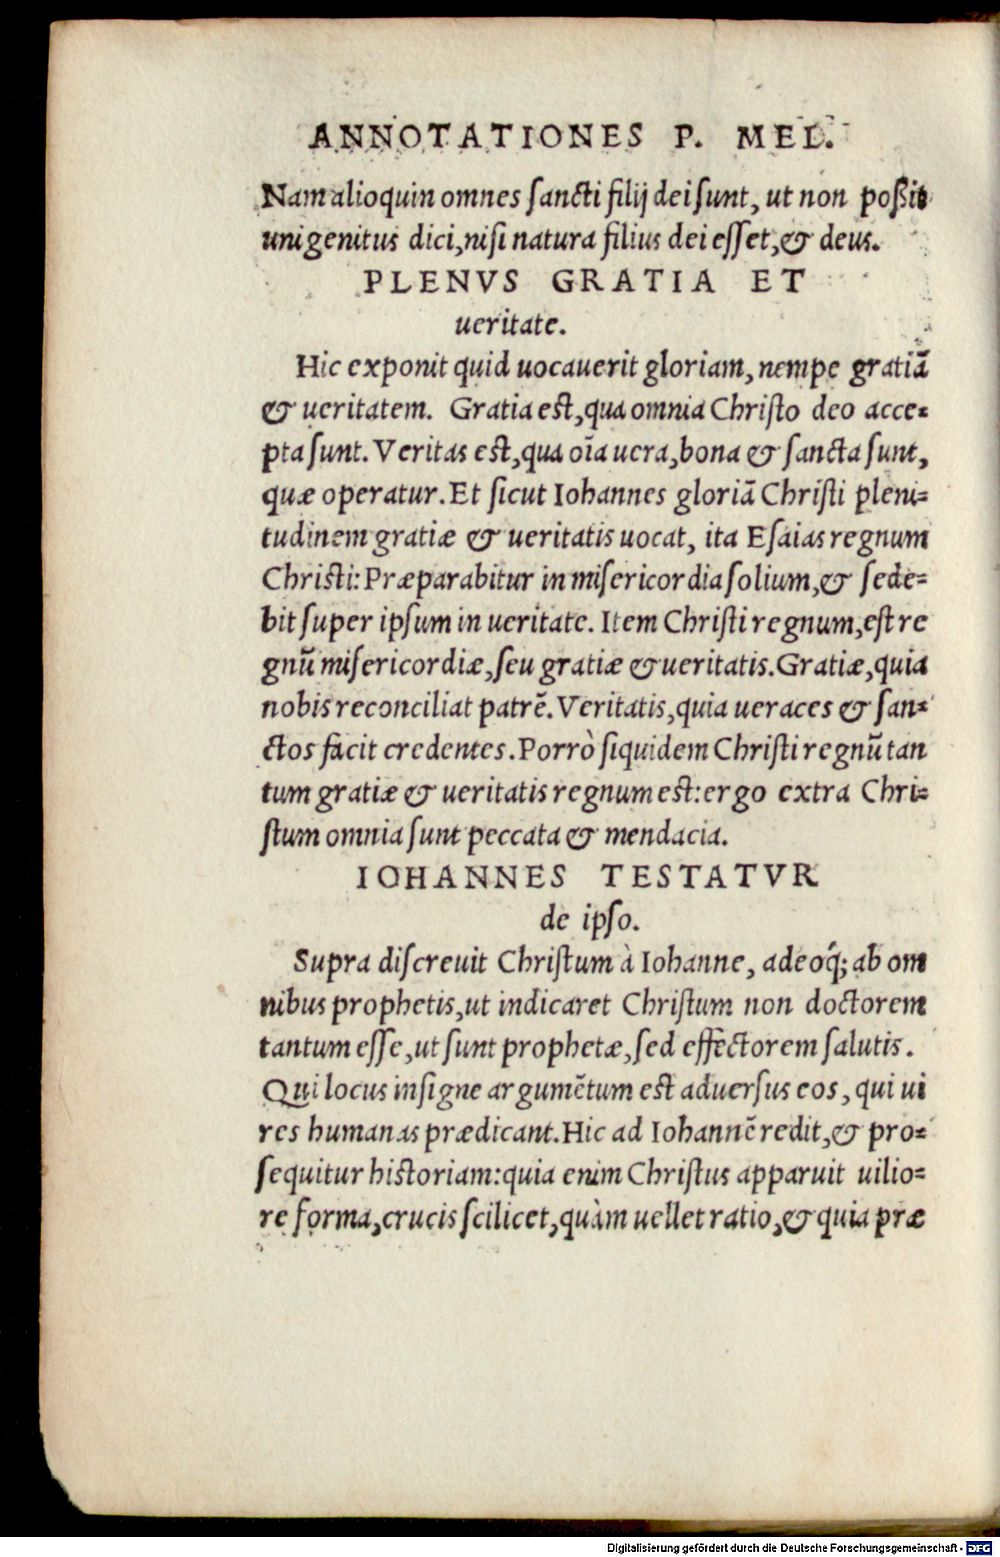 ANNOTATIONES P. MEL.
Nam alioquin omnes ſancti filij dei ſunt, ut non poßit
unigenitus dici, niſi natura filius dei eſſet, & deus.
PLENVS GRATIA ET
ueritate.
Hic exponit quid uocauerit gloriam, nempe gratiã
& ueritatem. Gratia est, qua omnia Chriſto deo acce-
pta ſunt. Veritas est, qua oĩa uera, bona & ſancta ſunt,
quæ operatur. Et ſicut Iohannes gloriã Chriſti pleni-
tudinem gratiæ & ueritatis uocat, ita Eſaias regnum
Chriſti: Præparabitur in miſericordia ſolium, & ſede-
bit ſuper ipſum in ueritate. Item Chriſti regnum, eſt re
gnũ miſericordiæ, ſeu gratiæ & ueritatis. Gratiæ, quia
nobis reconciliat patrẽ. Veritatis, quia ueraces & ſan-
ctos facit credentes. Porrò ſiquidem Chriſti regnũ tan
tum gratiæ & ueritatis regnum est: ergo extra Chri-
ſtum omnia ſunt peccata & mendacia.
IOHANNES TESTATVR
de ipſo.
Supra diſcreuit Chriſtum à Iohanne, adeoq́; ab om
nibus prophetis, ut indicaret Chriſtum non doctorem
tantum eſſe, ut ſunt prophetæ, ſed effectorem ſalutis.
Qui locus inſigne argumẽtum est aduerſus eos, qui ui
res humanas prædicant. Hic ad Iohannẽ redit, & pro-
ſequitur historiam: quia enim Chriſtus apparuit uilio-
re forma, crucis ſcilicet, quàm uellet ratio, & quia præ
Digitalisierung gefördert durch die Deutsche Forschungsgemeinschaft - DFG